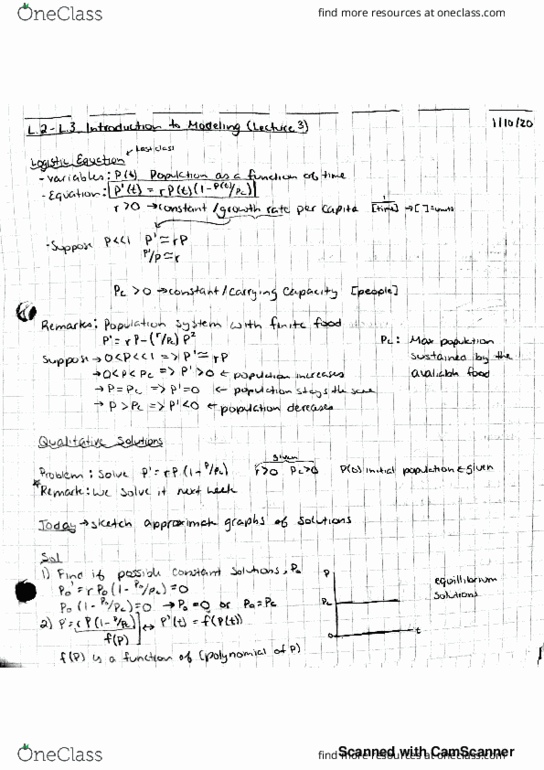 OneClass
find more resources at oneclass.com
L.2-L.3 Introduction to Modeling (Lecture 3)
1/10/20
last class
Logistic Equation
- variables: P(t) Population as a function of time
- Equation: P'(t) = rP(t)(1-P(t)/Pc)
r>0 → constant/growth rate per capita [1/time] → [ ]=units
- Suppose P<<1 P'≃rP
P'/P≃r
Pc >0 → constant/carrying capacity [people]
Remarks: Population system with finite food
P'= rP-(r/Pc)P²
Pc: Max population
sustained by the
availiable food
Suppose → 0<P<<1 => P'≃ rP
→ 0<P<Pc => P'>0 ← population increases
→ P=Pc => P'=0 ← population stays the same
→ P>Pc => P'<0 ← population decreases
Qualitative Solutions
given
Problem: Solve P'= rP(1-P/Pc) r>0 Pc>0 P(0) initial population ← given
*Remark: We solve it next week
Today → sketch approximate graphs of solutions
Sol
1) Find if possible constant solutions, Po
Po'= rPo(1-Po/Pc)=0
Po(1-Po/Pc)=0 → Po=0 or Po=Pc
P
Pc
0
t
equillibrium
solutions
2) P'=rP(1-P/Pc) ↔ P'(t) = f(P(t))
f(P)
f(P) is a function of (polynomial of P)
OneClass
find more resources at oneclass.com
Scanned with CamScanner